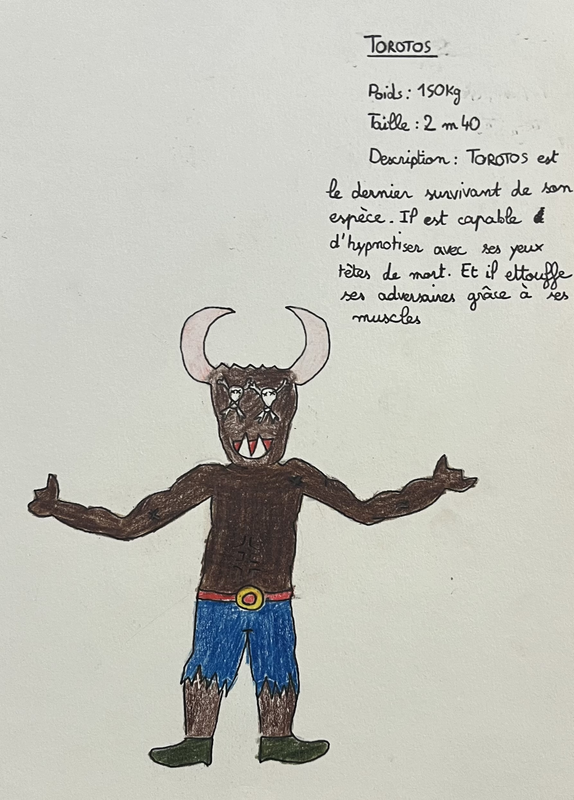 TOROTOS
Poids : 150Kg
Taille : 2 m 40
Description : TOROTOS est
le dernier survivant de son
espèce. Il est capable
d'hypnotiser avec ses yeux
têtes de mort. Et il ettouffe
ses adversaires grâce à ses
muscles